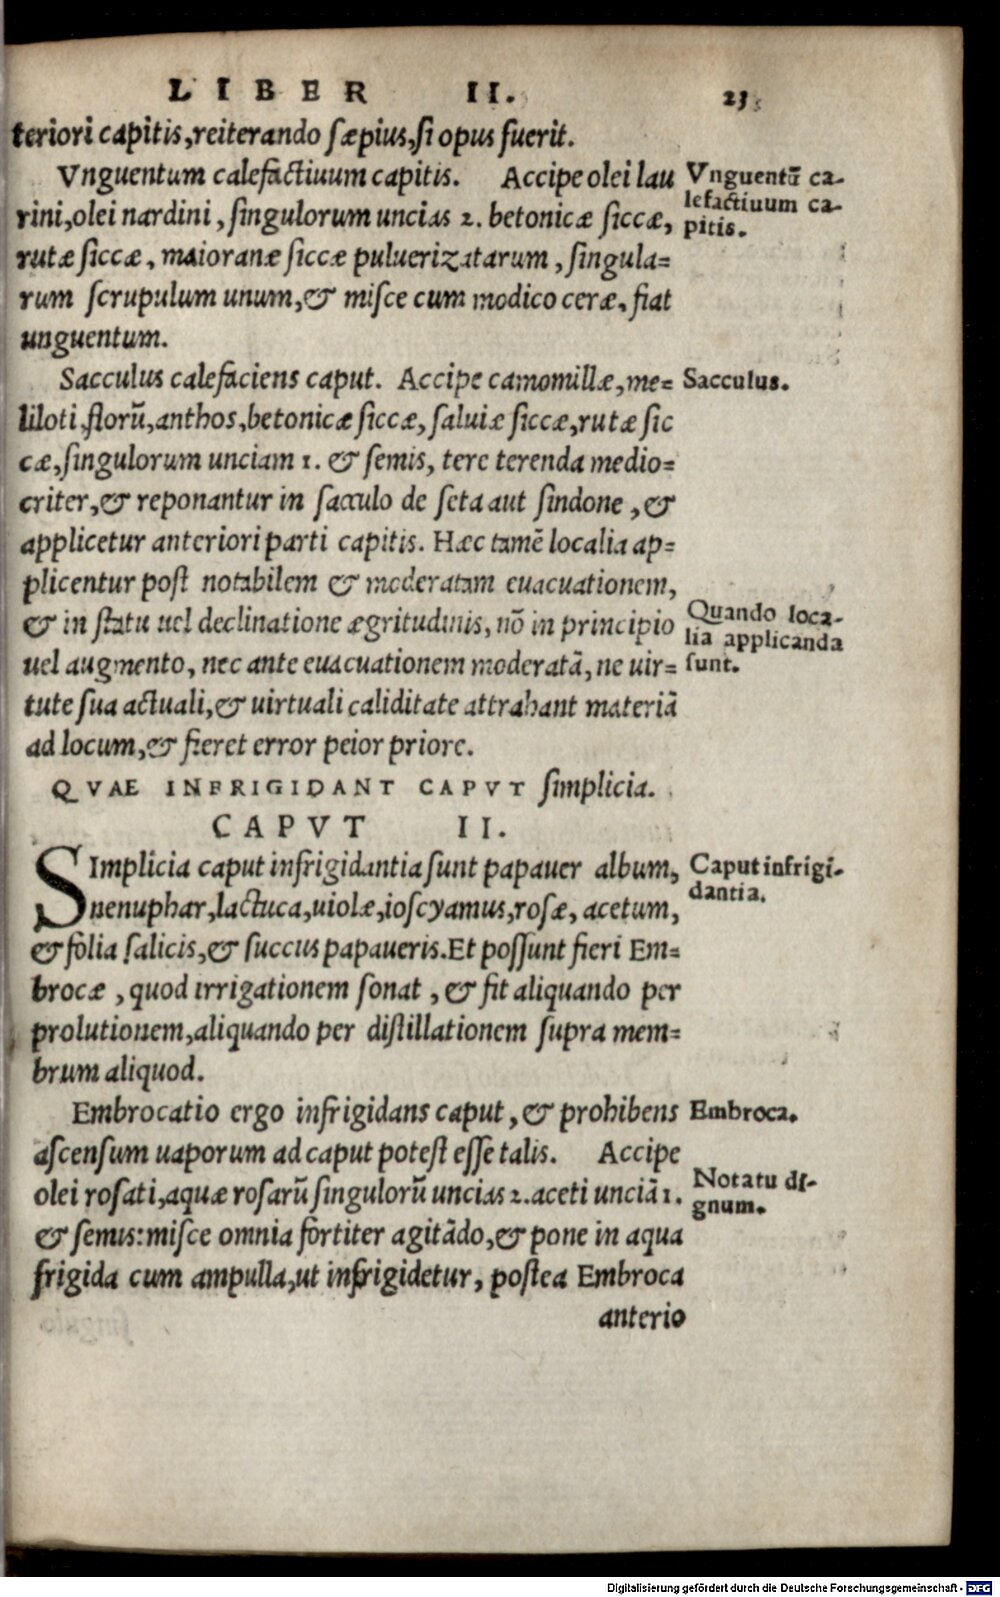 LIBER II. 23
teriori capitis, reiterando sæpius, si opus fuerit.
Vnguentum calefactiuum capitis. Accipe olei lau
rini, olei nardini, singulorum uncias 2. betonicæ siccæ,
rutæ siccæ, maioranæ siccæ puluerizatarum, singula=
rum scrupulum unum, & misce cum modico ceræ, fiat
unguentum.
Vnguentū ca-
lefactiuum ca-
pitis.
Sacculus calefaciens caput. Accipe camomillæ, me=
liloti, florū, anthos, betonicæ siccæ, saluiæ siccæ, rutæ sic
cæ, singulorum unciam 1. & semis, tere terenda medio=
criter, & reponantur in sacculo de seta aut sindone, &
applicetur anteriori parti capitis. Hæc tamē localia ap=
plicentur post notabilem & moderatam euacuationem,
& in statu uel declinatione ægritudinis, nō in principio
uel augmento, nec ante euacuationem moderatā, ne uir=
tute sua actuali, & uirtuali caliditate attrahant materiā
ad locum, & fieret error peior priore.
Sacculus.
Quando loca-
lia applicanda
sunt.
QVAE INFRIGIDANT CAPVT simplicia.
CAPVT II.
SImplicia caput infrigidantia sunt papauer album,
nenuphar, lactuca, uiolæ, ioscyamus, rosæ, acetum,
& folia salicis, & succus papaueris. Et possunt fieri Em=
brocæ, quod irrigationem sonat, & fit aliquando per
prolutionem, aliquando per distillationem supra mem=
brum aliquod.
Caput infrigi-
dantia.
Embrocatio ergo infrigidans caput, & prohibens
ascensum uaporum ad caput potest esse talis. Accipe
olei rosati, aquæ rosarū singulorū uncias 2. aceti unciā 1.
& semis: misce omnia fortiter agitādo, & pone in aqua
frigida cum ampulla, ut infrigidetur, postea Embroca
anterio
Embroca.
Notatu di-
gnum.
Digitalisierung gefördert durch die Deutsche Forschungsgemeinschaft - DFG